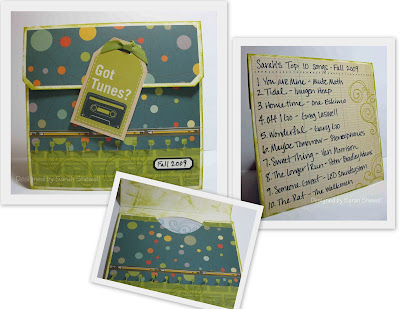 Got
Tunes?
Fall 2009
Designed by Sarah Shewell
Sarah's Top 10 songs - Fall 2009
1. You are Mine - Mute Math
2. Tidal - Imogen Heap
3. Hometime - One Eskimo
4. Off I Go - Greg Laswell
5. Wonderful - Gary Go
6. Maybe Tomorrow - Stereophonics
7. Sweet Thing - Van Morrison
8. The Longer I Run - Peter Bradley Adams
9. Someone Great - LCD Soundsystem
10. The Rat - The Walkmen
Designed by Sarah Shewell